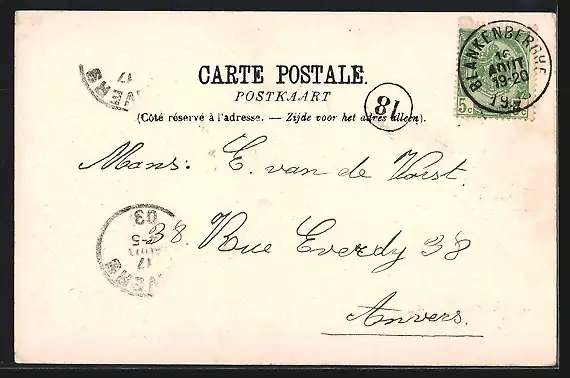 CARTE POSTALE.
POSTKAART
(Côté réservé à l'adresse. — Zijde voor het adres alleen).
BLANKENBERGHE
16
AOUT
19-20
5c
18
Mans: E. van de Vorst.
38. Rue Everdy 38
Anvers.
VERS
17
03
5
17
VERS